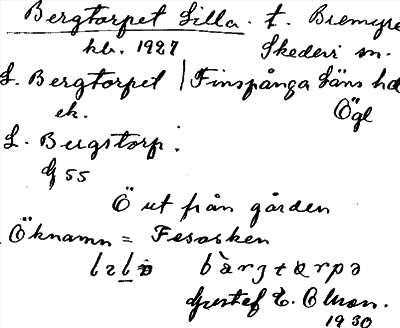 Bergtorpet Lilla. t. Bremyre
hb. 1927 Skedevi sn.
L. Bergtorpet | Finspånga Läns hd
ek. Ögl
L. Bergstorp:
G 55
Ö ut från gården
Öknamn = Fesasken
bærjtɷrpə
Gustaf E. Olsson.
1930